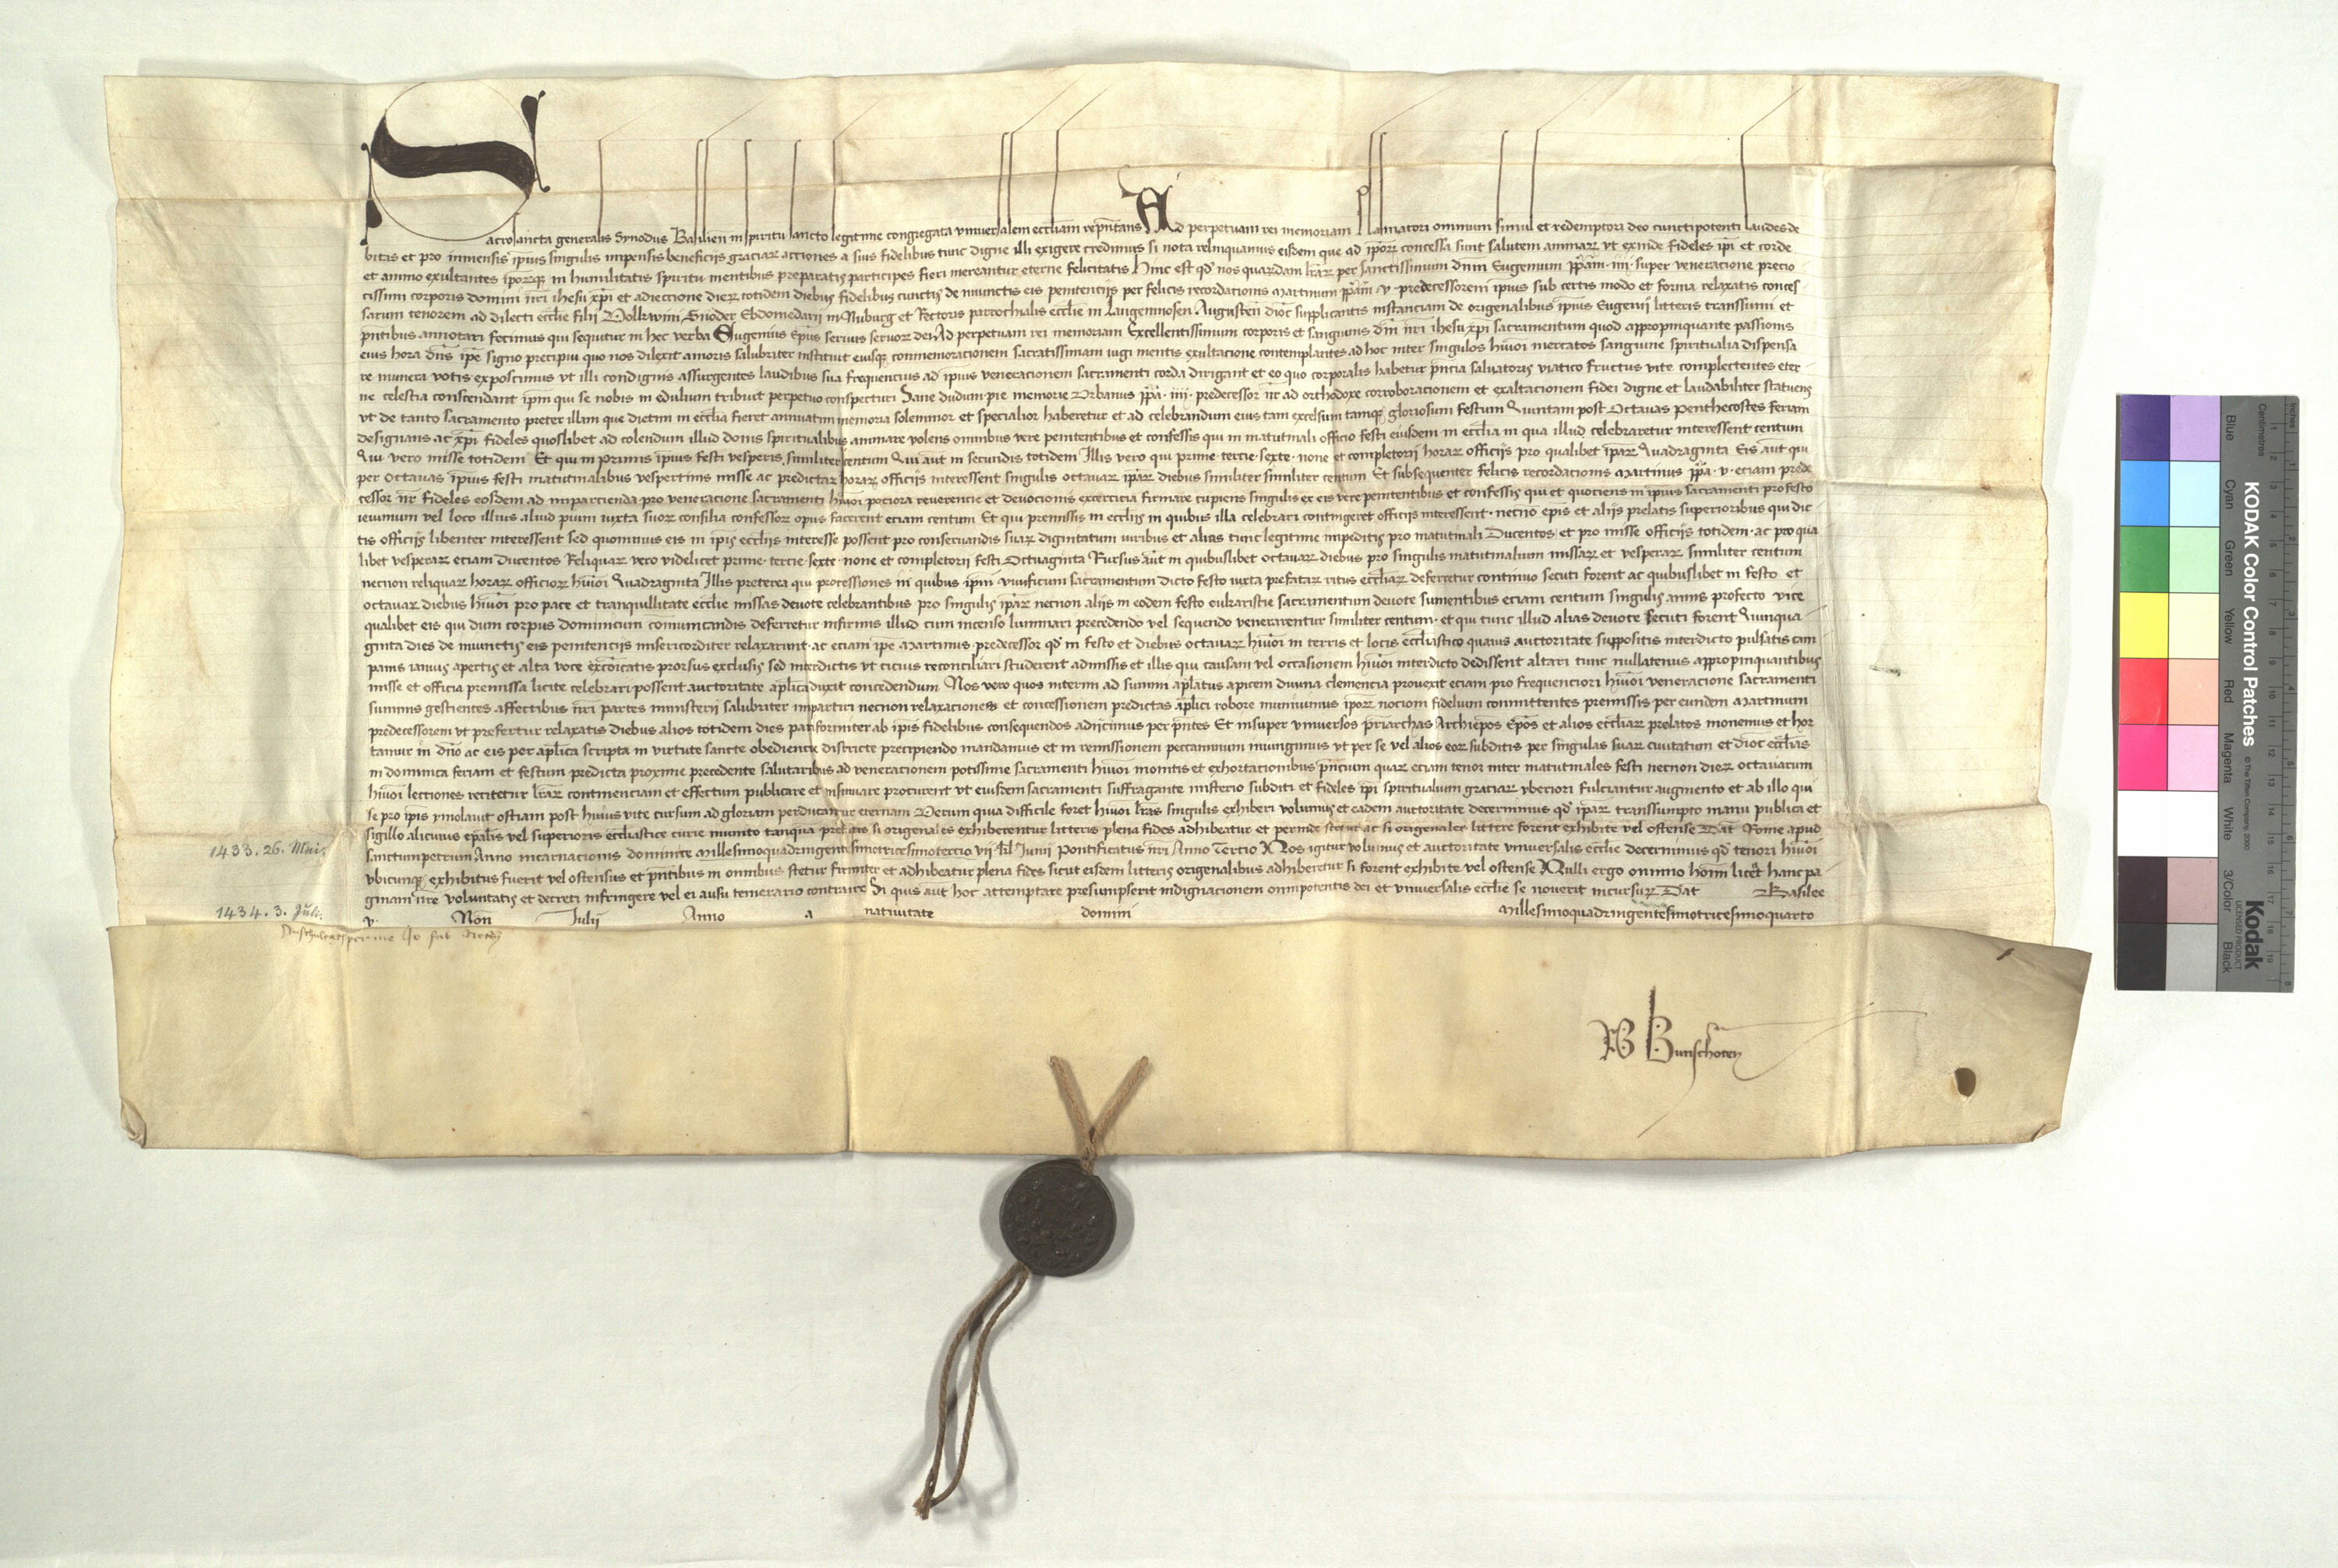 Sacrosancta generalis Synodus Basilien in spiritu sancto legitime congregata vniuersalem eccliam rep̄ntans Ad perpetuam rei memoriam Plasmatori omnium simul et redemptori deo cunctipotenti laudes de
bitas et pro inmensis ipius singulis impensis beneficijs graciaꝝ acciones a suis fidelibus tunc digne illi exigere credimus si nota relinquamus eisdem que ad ipoꝝ concessa sunt salutem animaꝝ vt exinde fideles ipi et corde
et animo exultantes ipoꝝqꝫ in humilitatis spiritu mentibus preparatis participes fieri mereantur eterne felicitatis Hinc est qd̄ nos quaꝝdam lr̄aꝝ per sanctissimum dn̄m Eugenium pp̄am .iiij. super veneracione precio
tissimi corporis domini nr̄i ihesu xp̄i et adieccione dieꝝ totidem diebus fidelibus cunctis de iniunctis eis penitencijs per felicis recordacionis Martinum pp̄am .v. predecessorem ipius sub certis modo et forma relaxatis conces
sarum tenorem ad dilecti ecclie filij Volkwini Snöder Ebdomedarij in Nuburg et Rectoris parrochialis ecclie in Langenmosen Augusten dioc̄ supplicantis instanciam de origenalibus ipius Eugenij litteris transsumi et
pn̄tibus annotari fecimus qui sequitur in hec verba Eugenius Ep̄us seruus seruoꝝ dei Ad perpetuam rei memoriam Excellentissimum corporis et sanguinis dn̄i nr̄i ihesu xp̄i sacramentum quod appropinquante passionis
eius hora dn̄s ip̄e signo precipui quo nos dilexit amoris salubriter instituit eiusqꝫ conmemoracionem sacratissimam iugi mentis exultacione contemplantes ad hoc inter singulos hm̄oi mercatos sanguine spiritualia dispensa
re munera votis exposcimus vt illi condignis assurgentes laudibus sua frequencius ad ipius veneracionem sacramenti corda dirigant et eo quo corporalis habetur pn̄cia saluatoris viatico fructus vite complectentes eter
ne celestia conscendant ip̄m qui se nobis in edulium tribuit perpetuo conspecturi Sane dudum pie memorie Urbanus pp̄a .iiij. predecessor nr̄ ad orthodoxe corroboracionem et exaltacionem fidei digne et laudabiliter statuens
vt de tanto sacramento preter illam que dietim in ecclia fieret annuatim memoria solemnior et specialior haberetur et ad celebrandum eius tam excelsum tamqꝫ gloriosum festum Quintam post Octauas Penthecostes feriam
designans ac xp̄i fideles quoslibet ad colendum illud donis spiritualibus animare volens omnibus vere penitentibus et confessis qui in matutinali officio festi eiusdem in ecclia in qua illud celebraretur interessent centum
Qui vero misse totidem Et qui in primis ipius festi vesperis similiter centum Qui aut̄ in secundis totidem Illis vero qui prime tercie sexte none et completorij horaꝝ officijs pro qualibet ipaꝝ Quadraginta Eis aut̄ qui
per octauas ipius festi matutinalibus vespertinis misse ac predictaꝝ horaꝝ officijs interessent singulis octauaꝝ ipaꝝ diebus similiter similiter centum Et subsequenter felicis recordacionis Martinus pp̄a .v. eciam prede
cessor nr̄ fideles eosdem ad impartienda pro veneracione sacramenti hm̄oi pociora reuerencie et deuocionis exercicia firmare cupiens singulis ex eis vere penitentibus et confessis qui et quociens in ipius sacramenti profesto
ieiunium vel loco illius aliud pium iuxta suoꝝ consilia confessoꝝ opus facerent eciam centum Et qui premissis in ecclijs in quibus illa celebrari contingeret officijs interessent necnō ep̄is et alijs prelatis superioribus qui dic
tis officijs libenter interessent sed quominus eis in ipis ecclijs interesse possent pro conseruandis suaꝝ dignitatum iuribus et alias tunc legitime impeditis pro matutinali Ducentos et pro misse officijs totidem ac pro qua
libet vesperaꝝ eciam ducentos Reliquaꝝ vero videlicet prime tercie sexte none et completorij festi Octuaginta Rursus aūt in quibuslibet octauaꝝ diebus pro singulis matutinalium missaꝝ et vesperaꝝ similiter centum
necnon reliquaꝝ horaꝝ officioꝝ hm̄oi Quadraginta Illis preterea qui processiones in quibus ip̄m viuificum sacramentum dicto festo iuxta prefataꝝ ritus eccliaꝝ deferretur continuo secuti forent ac quibuslibet in festo et
octauaꝝ diebus hm̄oi pro pace et tranquillitate ecclie missas deuote celebrantibus pro singulis ipaꝝ necnon alijs in eodem festo eukaristie sacramentum deuote sumentibus eciam centum singulis annis profecto vice
qualibet eis qui dum corpus dominicum comunicandis deferretur infirmis illud cum incenso luminari precedendo vel sequendo venerarentur similiter centum et qui tunc illud alias deuote secuti forent Quinqua
ginta dies de iniunctis eis penitencijs misericorditer relaxarunt ac eciam ip̄e Martinus predecessor qd̄ in festo et diebus octauaꝝ hm̄oi in terris et locis ecclīastico quauis auctoritate suppositis interdicto pulsatis cam
panis ianuis apertis et alta voce excōicatis prorsus exclusis sed interdictis vt cicius reconciliari studerent admissis et illis qui causam vel occasionem hm̄oi interdicto dedissent altari tunc nullatenus appropinquantibus
misse et officia premissa licite celebrari possent auctoritate aplica duxit concedendum Nos vero quos interim ad summi aplatus apicem diuina clemencia prouexit eciam pro frequenciori hm̄oi veneracione sacramenti
summis gestientes affectibus nr̄i partes ministerij salubriter impartiri necnon relaxaciones et concessionem predictas aplici robore muniuimus ipoꝝ nocioni fidelium committentes premissis per eundem Martinum
predecessorem vt prefertur relaxatis diebus alios totidem dies pariformiter ab ipis fidelibus consequendos adijcimus per pn̄tes Et insuper vniuersos p̄riarchas Archiepos Ep̄os et alios eccliaꝝ prelatos monemus et hor
tamur in dn̄o ac eis per aplica scripta in virtute sancte obediencie districte precipiendo mandamus et in remissionem peccaminum iniungimus vt per se vel alios eoꝝ subditis per singulas suaꝝ ciuitatum et dioc̄ ecclias
in dominica feriam et festum predicta proxime precedente salutaribus ad veneracionem potissime sacramenti hm̄oi monitis et exhortacionibus pn̄cium quaꝝ eciam tenor inter matutinales festi necnon dieꝝ octauarum
hm̄oi lectiones recitetur lr̄aꝝ continenciam et effectum publicare et insinuare procurent vt eiusdem sacramenti suffragante misterio subditi et fideles ipi spiritualium graciaꝝ vberiori fulciantur augmento et ab illo qui
se pro ipis ymolauit ostiam post huius vite cursum ad gloriam perducantur eternam Verum quia difficile foret hm̄oi lr̄as singulis exhiberi volumus et eadem auctoritate decernimus qd̄ ipaꝝ transsumpto manu publica et
sigillo alicuius ep̄alis vel superioris ecclīastice curie munito tanquā prefatis si origenales exhiberentur litteris plena fides adhibeatur et perinde stetur ac si origenales littere forent exhibite vel ostense Dat̄ Rome apud
sanctumpetrum Anno incarnacionis dominice Millesimoquadringentesimotricesimotercio vij kl̄ Junij Pontificatus nr̄i Anno Tercio Nos igitur volumus et auctoritate vniuersalis ecclie decernimus qd̄ tenori hm̄oi
vbicunqꝫ exhibitus fuerit vel ostensus et pn̄tibus in omnibus stetur firmiter et adhibeatur plena fides sicut eisdem litteris origenalibus adhiberetur si forent exhibite vel ostense Nulli ergo omnino hoīm liceat hanc pa
ginam nr̄e voluntatis et decreti infringere vel ei ausu temerario contraire Si quis aut̄ hoc attemptare presumpserit indignacionem omnipotentis dei et vniuersalis ecclie se nouerit incursuꝝ Dat̄ Basilee
v. Non̄ Julij Anno a natiuitate domini Millesimoquadringentesimotricesimoquarto
1433. 26. Mai.
1434. 3. Juli.
B Bunschoten
KODAK Color Control Patches
© The Tiffen Company, 2000
Kodak
LICENSED PRODUCT
Blue Cyan Green Yellow Red Magenta White 3/Color Black
Centimetres
Inches